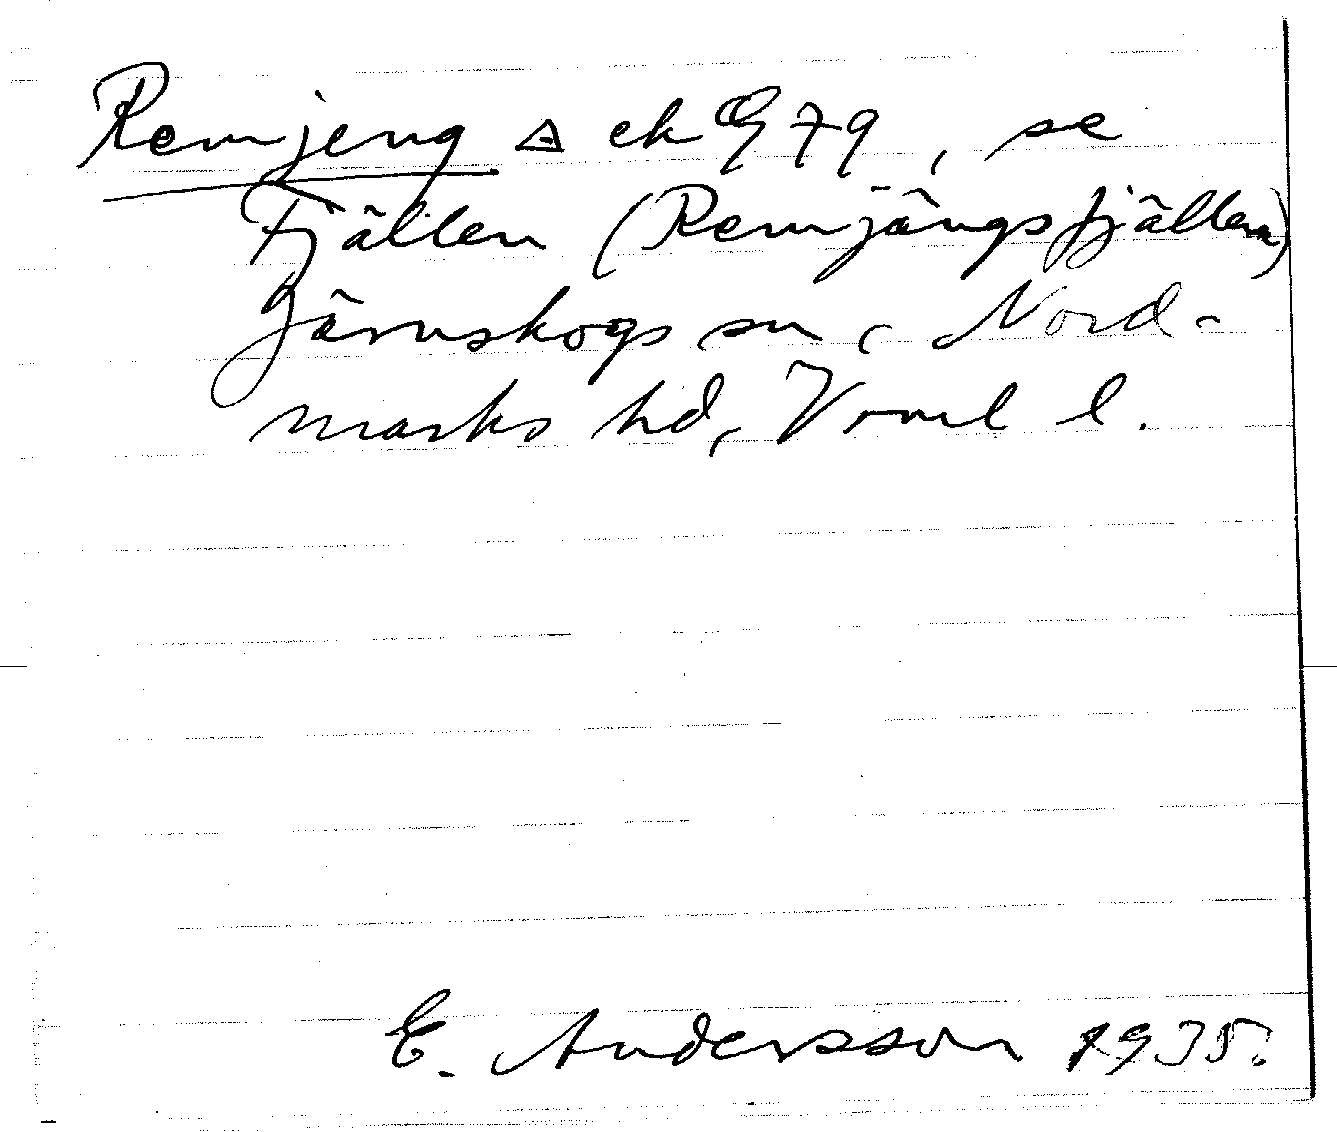 Remjeng △ ek G 79, se
Fjällen (Remjängsfjällen)
Järnskogs sn, Nord-
marks hd, Vrml l.
E. Andersson 1935.